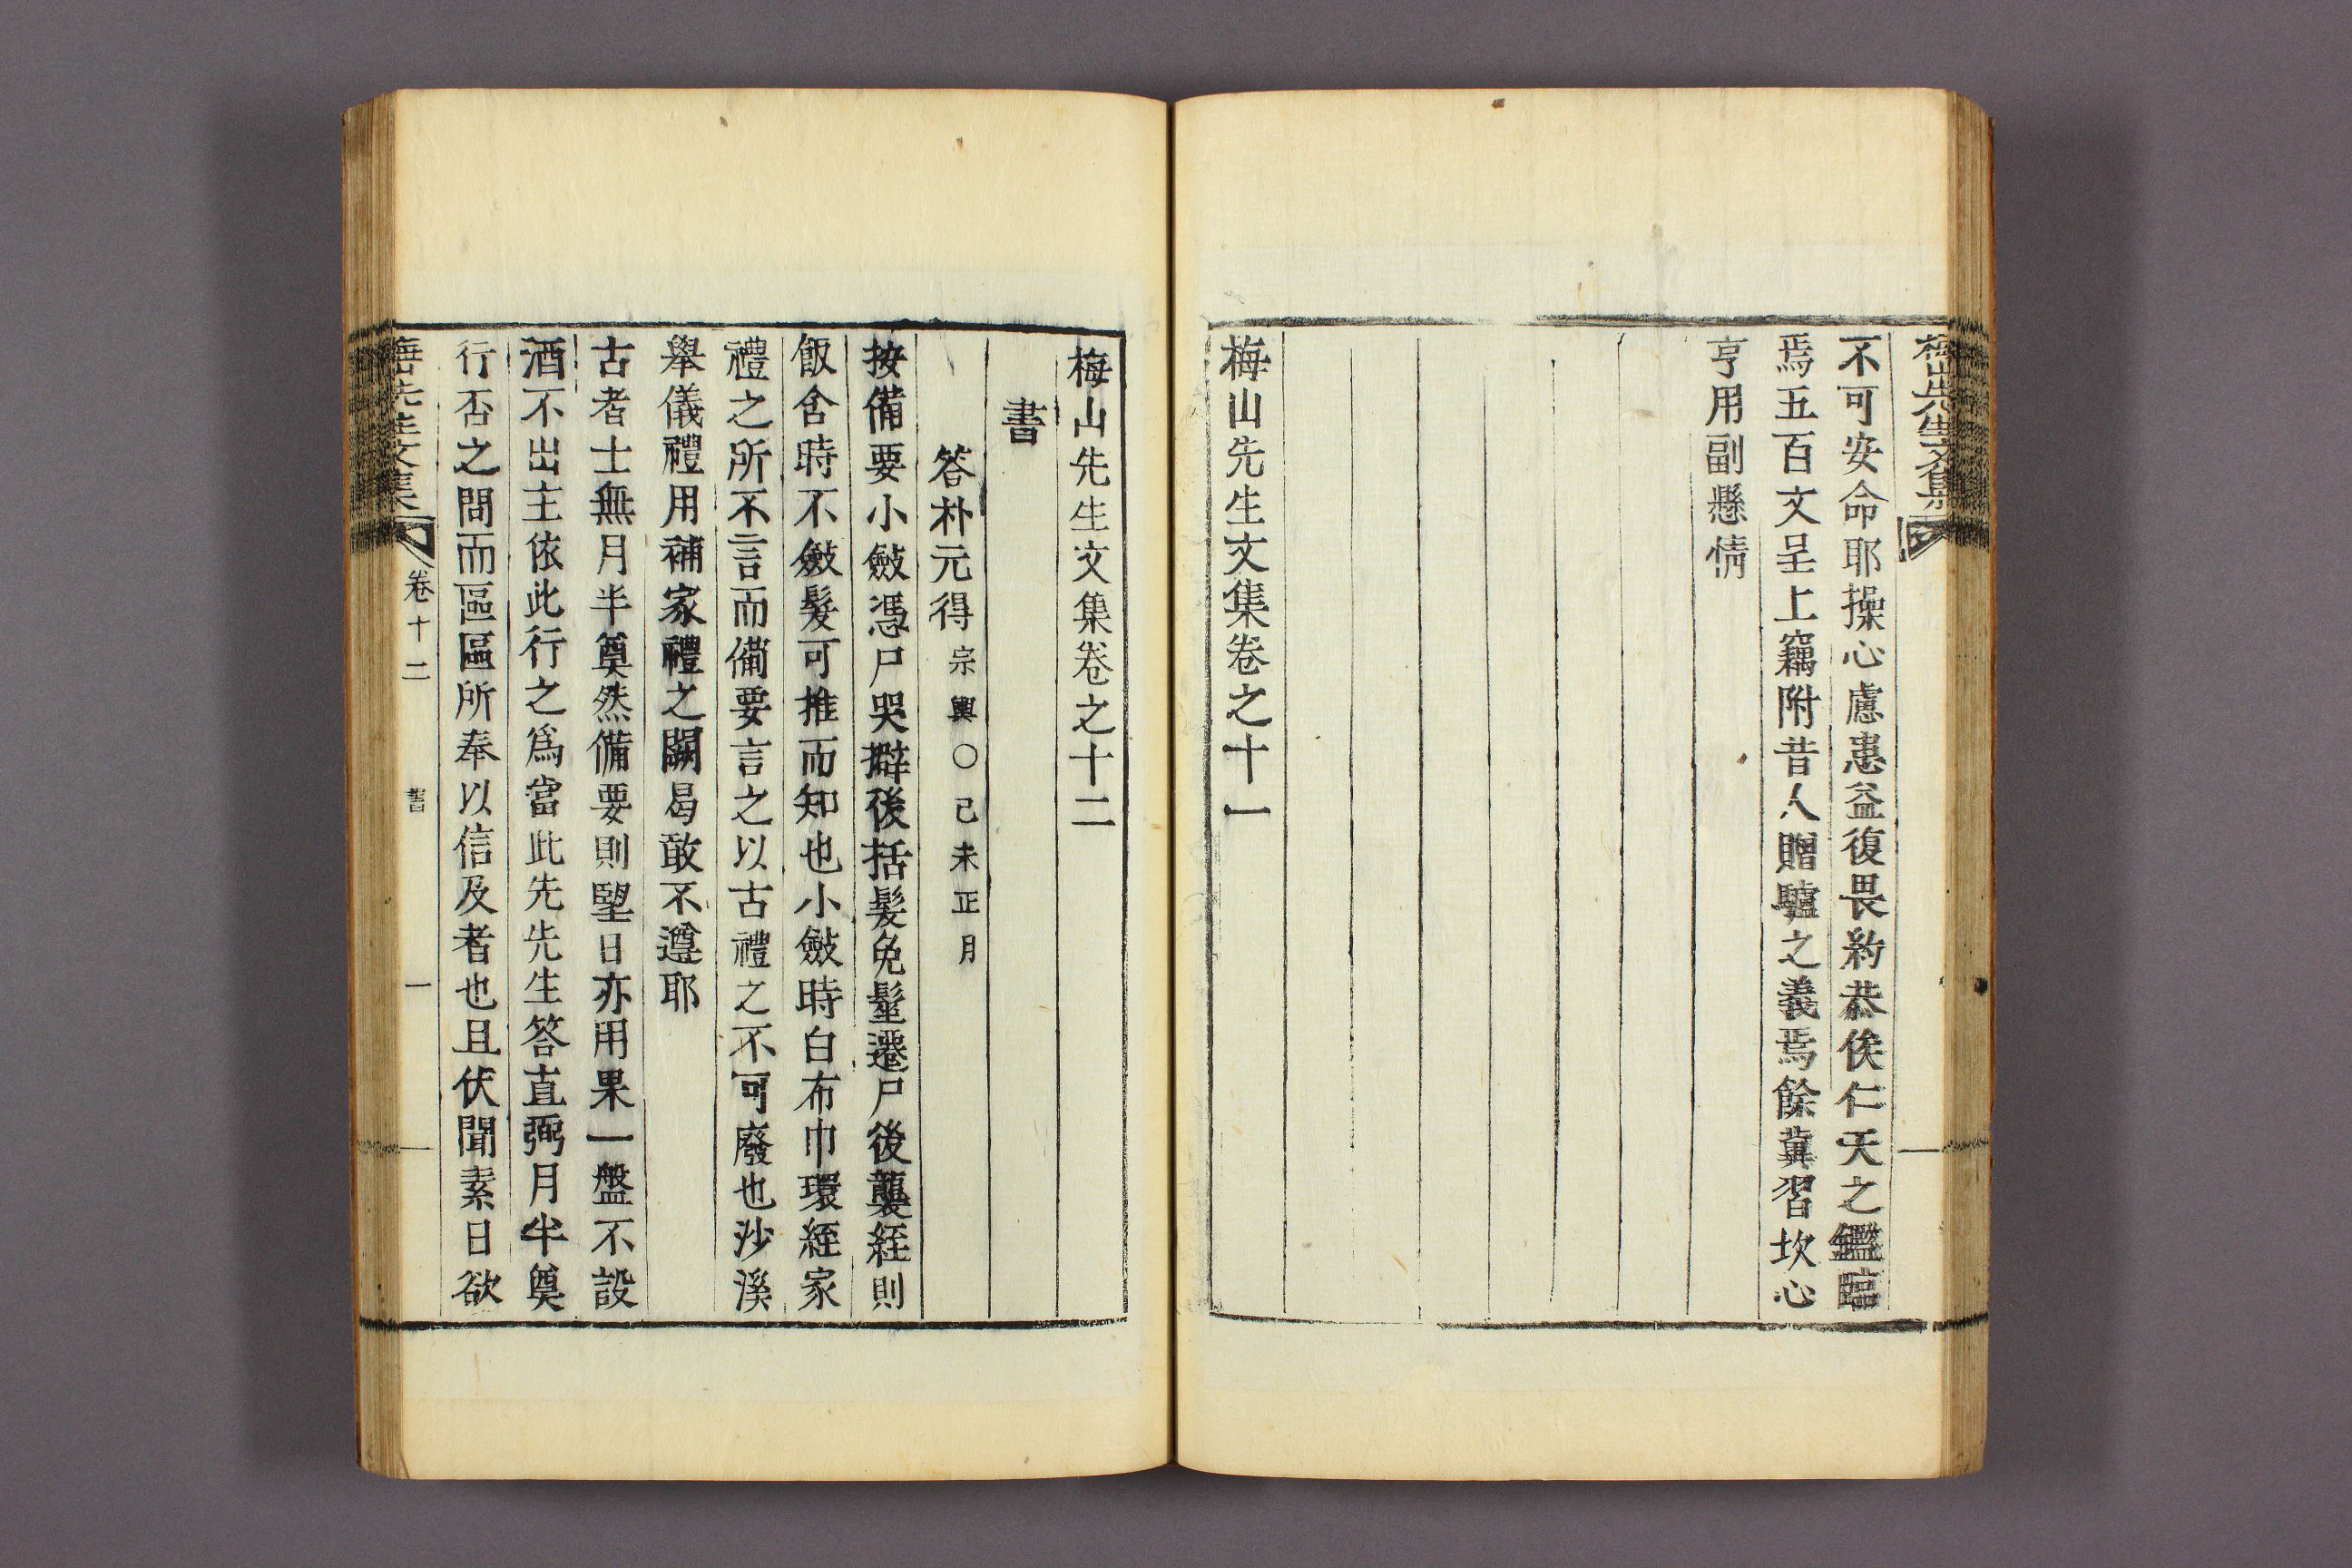 梅山先生文集
不可安命耶操心慮患益復畏約恭俟仁天之鑑臨
焉五百文呈上竊附昔人贈驢之義焉餘冀習坎心
亨用副懸情
梅山先生文集卷之十一
梅山先生文集卷之十二
書
答朴元得宗輿○己未正月
按備要小斂憑尸哭擗後括髮免髽遷尸後襲絰則
飯含時不斂髮可推而知也小斂時白布巾環絰家
禮之所不言而備要言之以古禮之不可廢也沙溪
舉儀禮用補家禮之闕曷敢不遵耶
古者士無月半奠然備要則朢日亦用果一盤不設
酒不出主依此行之爲當此先先生答直弼月半奠
行否之問而區區所奉以信及者也且伏聞素日欲
梅山先生文集 卷十二 書 一